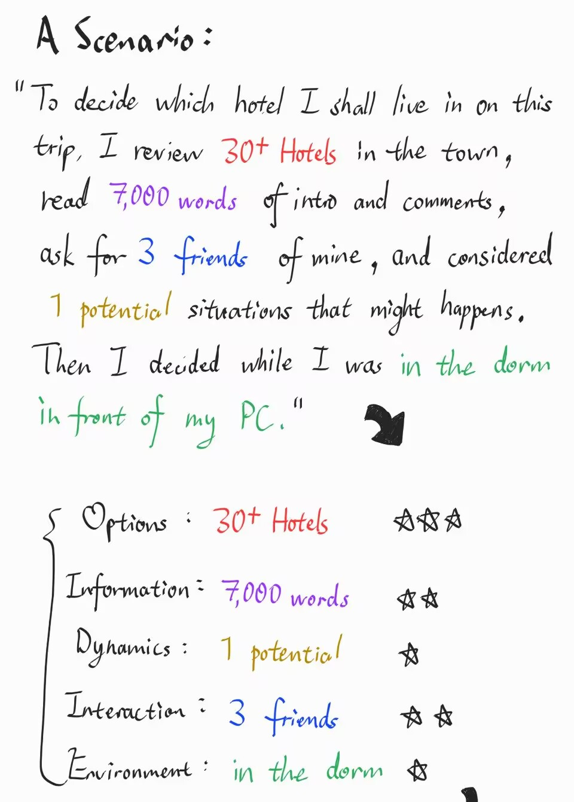 A Scenario:
"To decide which hotel I shall live in on this
trip, I review 30+ Hotels in the town,
read 7,000 words of intro and comments,
ask for 3 friends of mine, and considered
1 potential situations that might happens.
Then I decided while I was in the dorm
in front of my PC."
Options: 30+ Hotels
Information: 7,000 words
Dynamics: 1 potential
Interaction: 3 friends
Environment: in the dorm